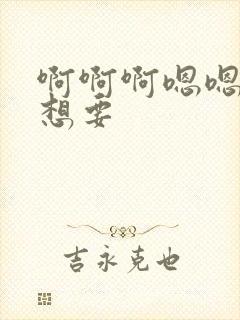 啊啊啊嗯嗯
想要
吉永克也